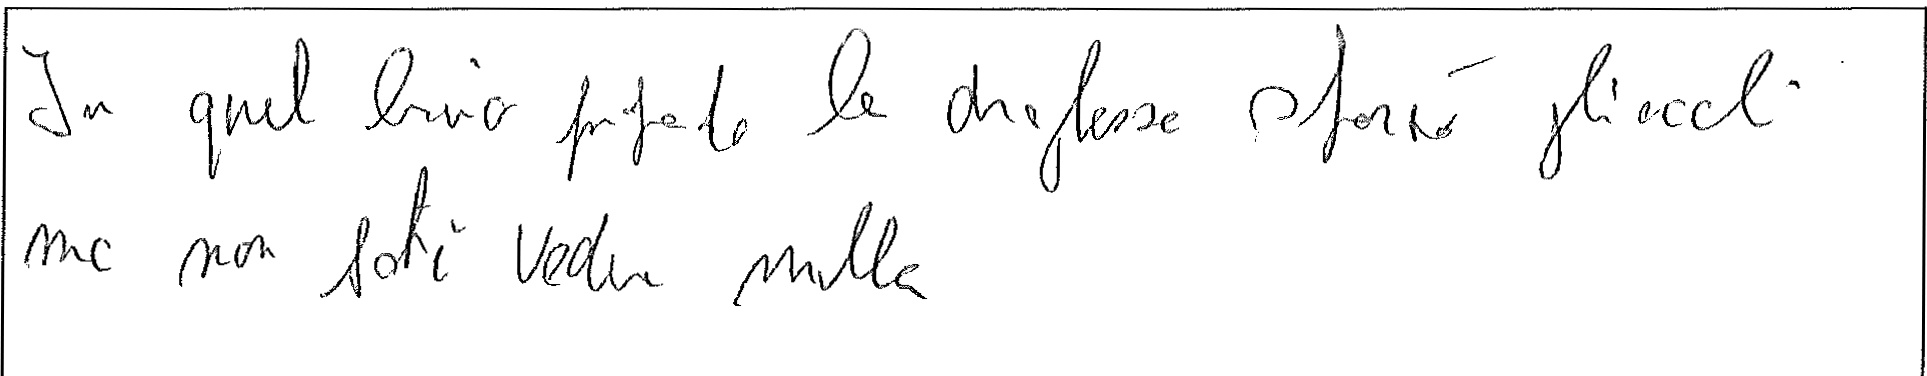 In quel buio pifesto la draghessa sforzò gli occhi
ma non poté vedere nulla